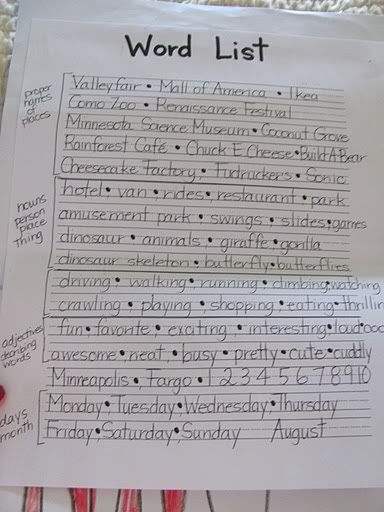 Word List
proper names of places
Valleyfair • Mall of America • Ikea
Como Zoo • Renaissance Festival
Minnesota Science Museum • Coconut Grove
Rainforest Café • Chuck E Cheese • Build A Bear
Cheesecake Factory • Fudruckers • Sonic
nouns person place thing
hotel • van • rides • restaurant • park
amusement park • swings • slides • games
dinosaur • animals • giraffe • gorilla
dinosaur skeleton • butterfly • butterflies
driving • walking • running • climbing • watching
crawling • playing • shopping • eating • thrillin
adjectives describing words
fun • favorite • exciting • interesting • loud •
awesome • neat • busy • pretty • cute • cuddly
Minneapolis • Fargo • 1 2 3 4 5 6 7 8 9 10
days month
Monday • Tuesday • Wednesday • Thursday
Friday • Saturday • Sunday August